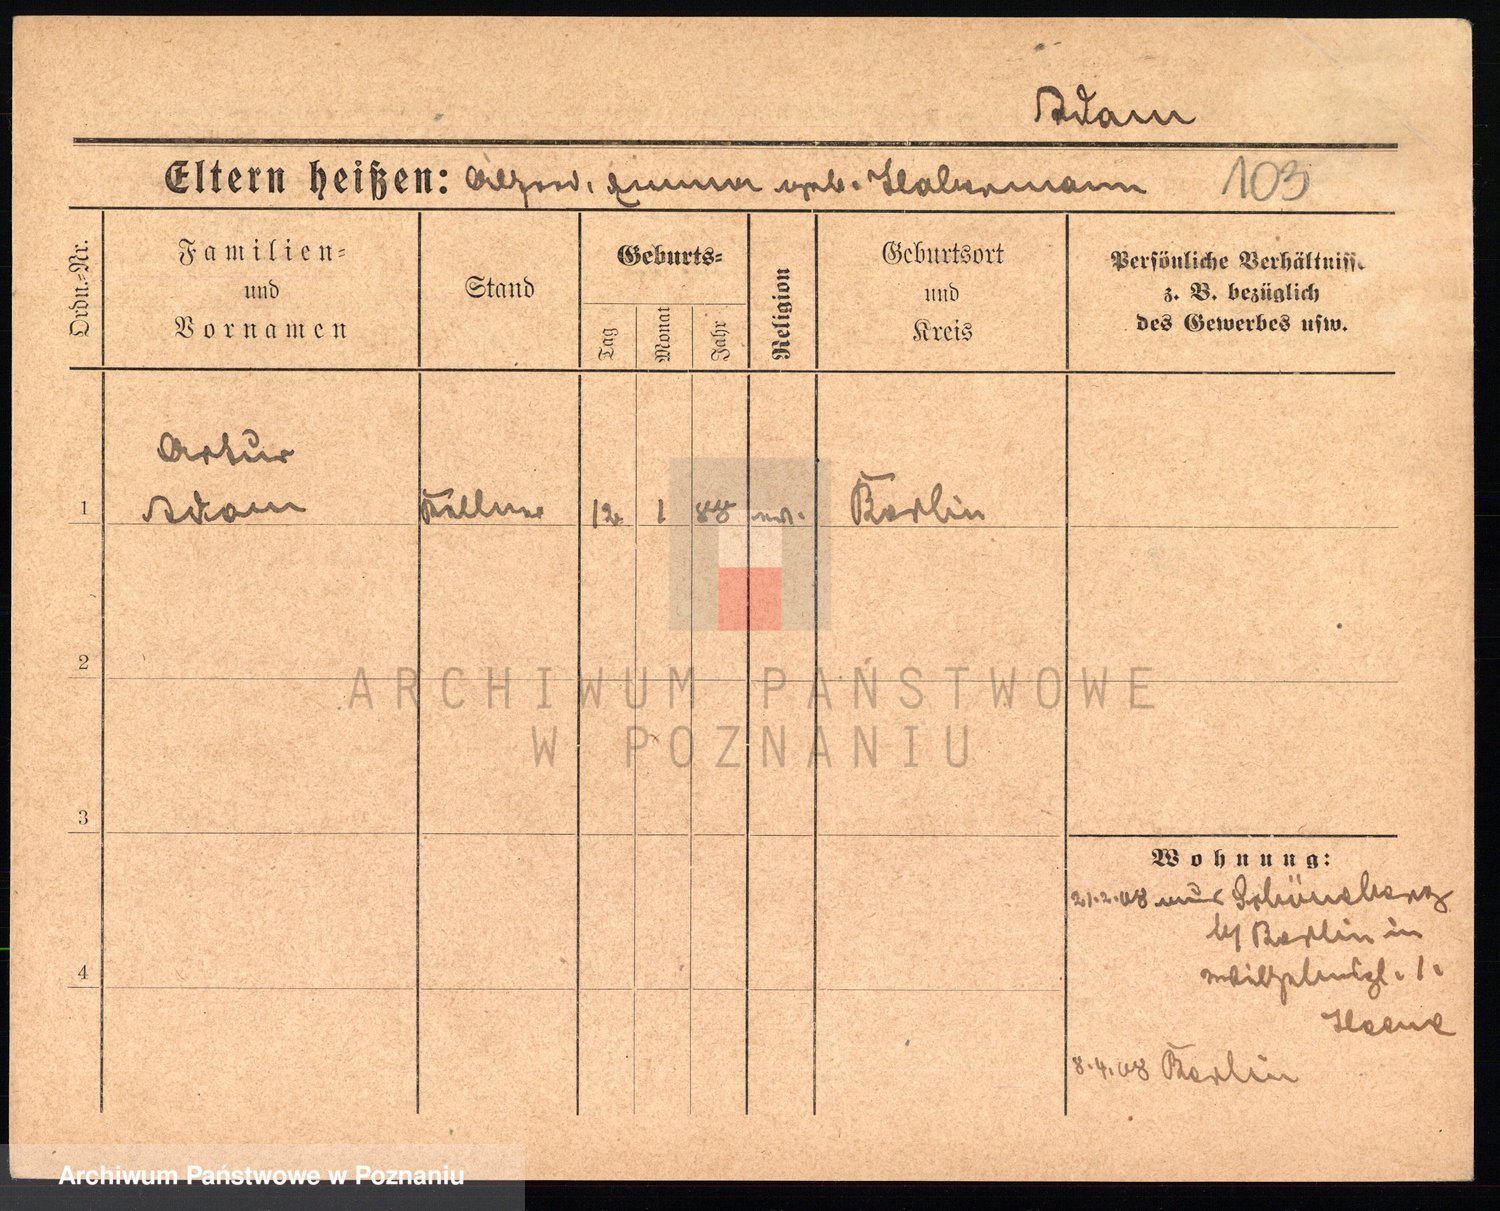 Adam
Eltern heißen: Alfred. Emma geb. Habermann 103
Ordn.-Nr.
Familien-
und
Vornamen
Stand
Geburts-
Tag
Monat
Jahr
Religion
Geburtsort
und
Kreis
Persönliche Verhältnisse
z. B. bezüglich
des Gewerbes usw.
Artur
1 Adam Kellner 12 1 88 ev. Berlin
2
3
4
Wohnung:
21.2.08 aus Schöneberg
b/ Berlin in
Wilhelmspl. 1.
8.4.08 Berlin
ARCHIWUM PAŃSTWOWE
W POZNANIU
Archiwum Państwowe w Poznaniu